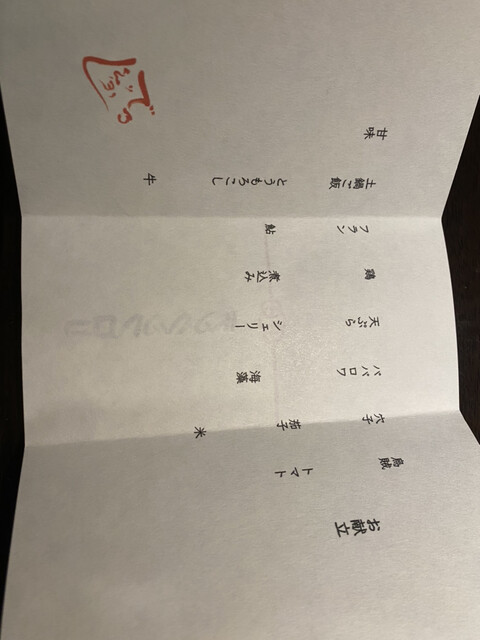 お献立
烏賊　トマト
穴子　茄子　米
ババロワ　海藻
天ぷら　シェリー
鶏　煮込み
フラン　鮎
土鍋ご飯　とうもろこし　牛
甘味